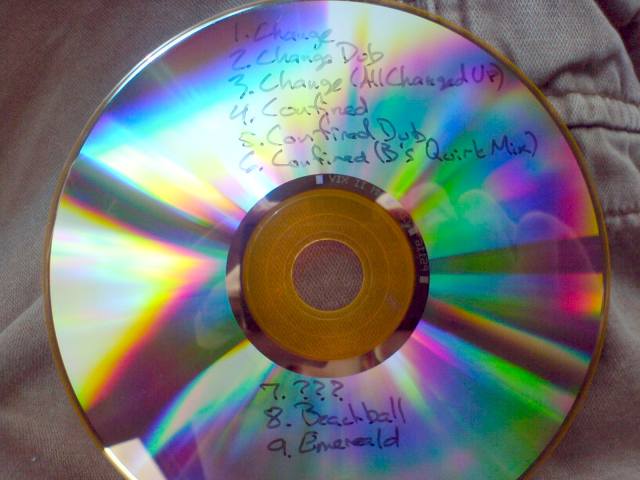 1. Change
2. Change Dub
3. Change (All Changed Up)
4. Confined
5. Confined Dub
6. Confined (B's Quirk Mix)
7. ???
8. Beachball
9. Emerald